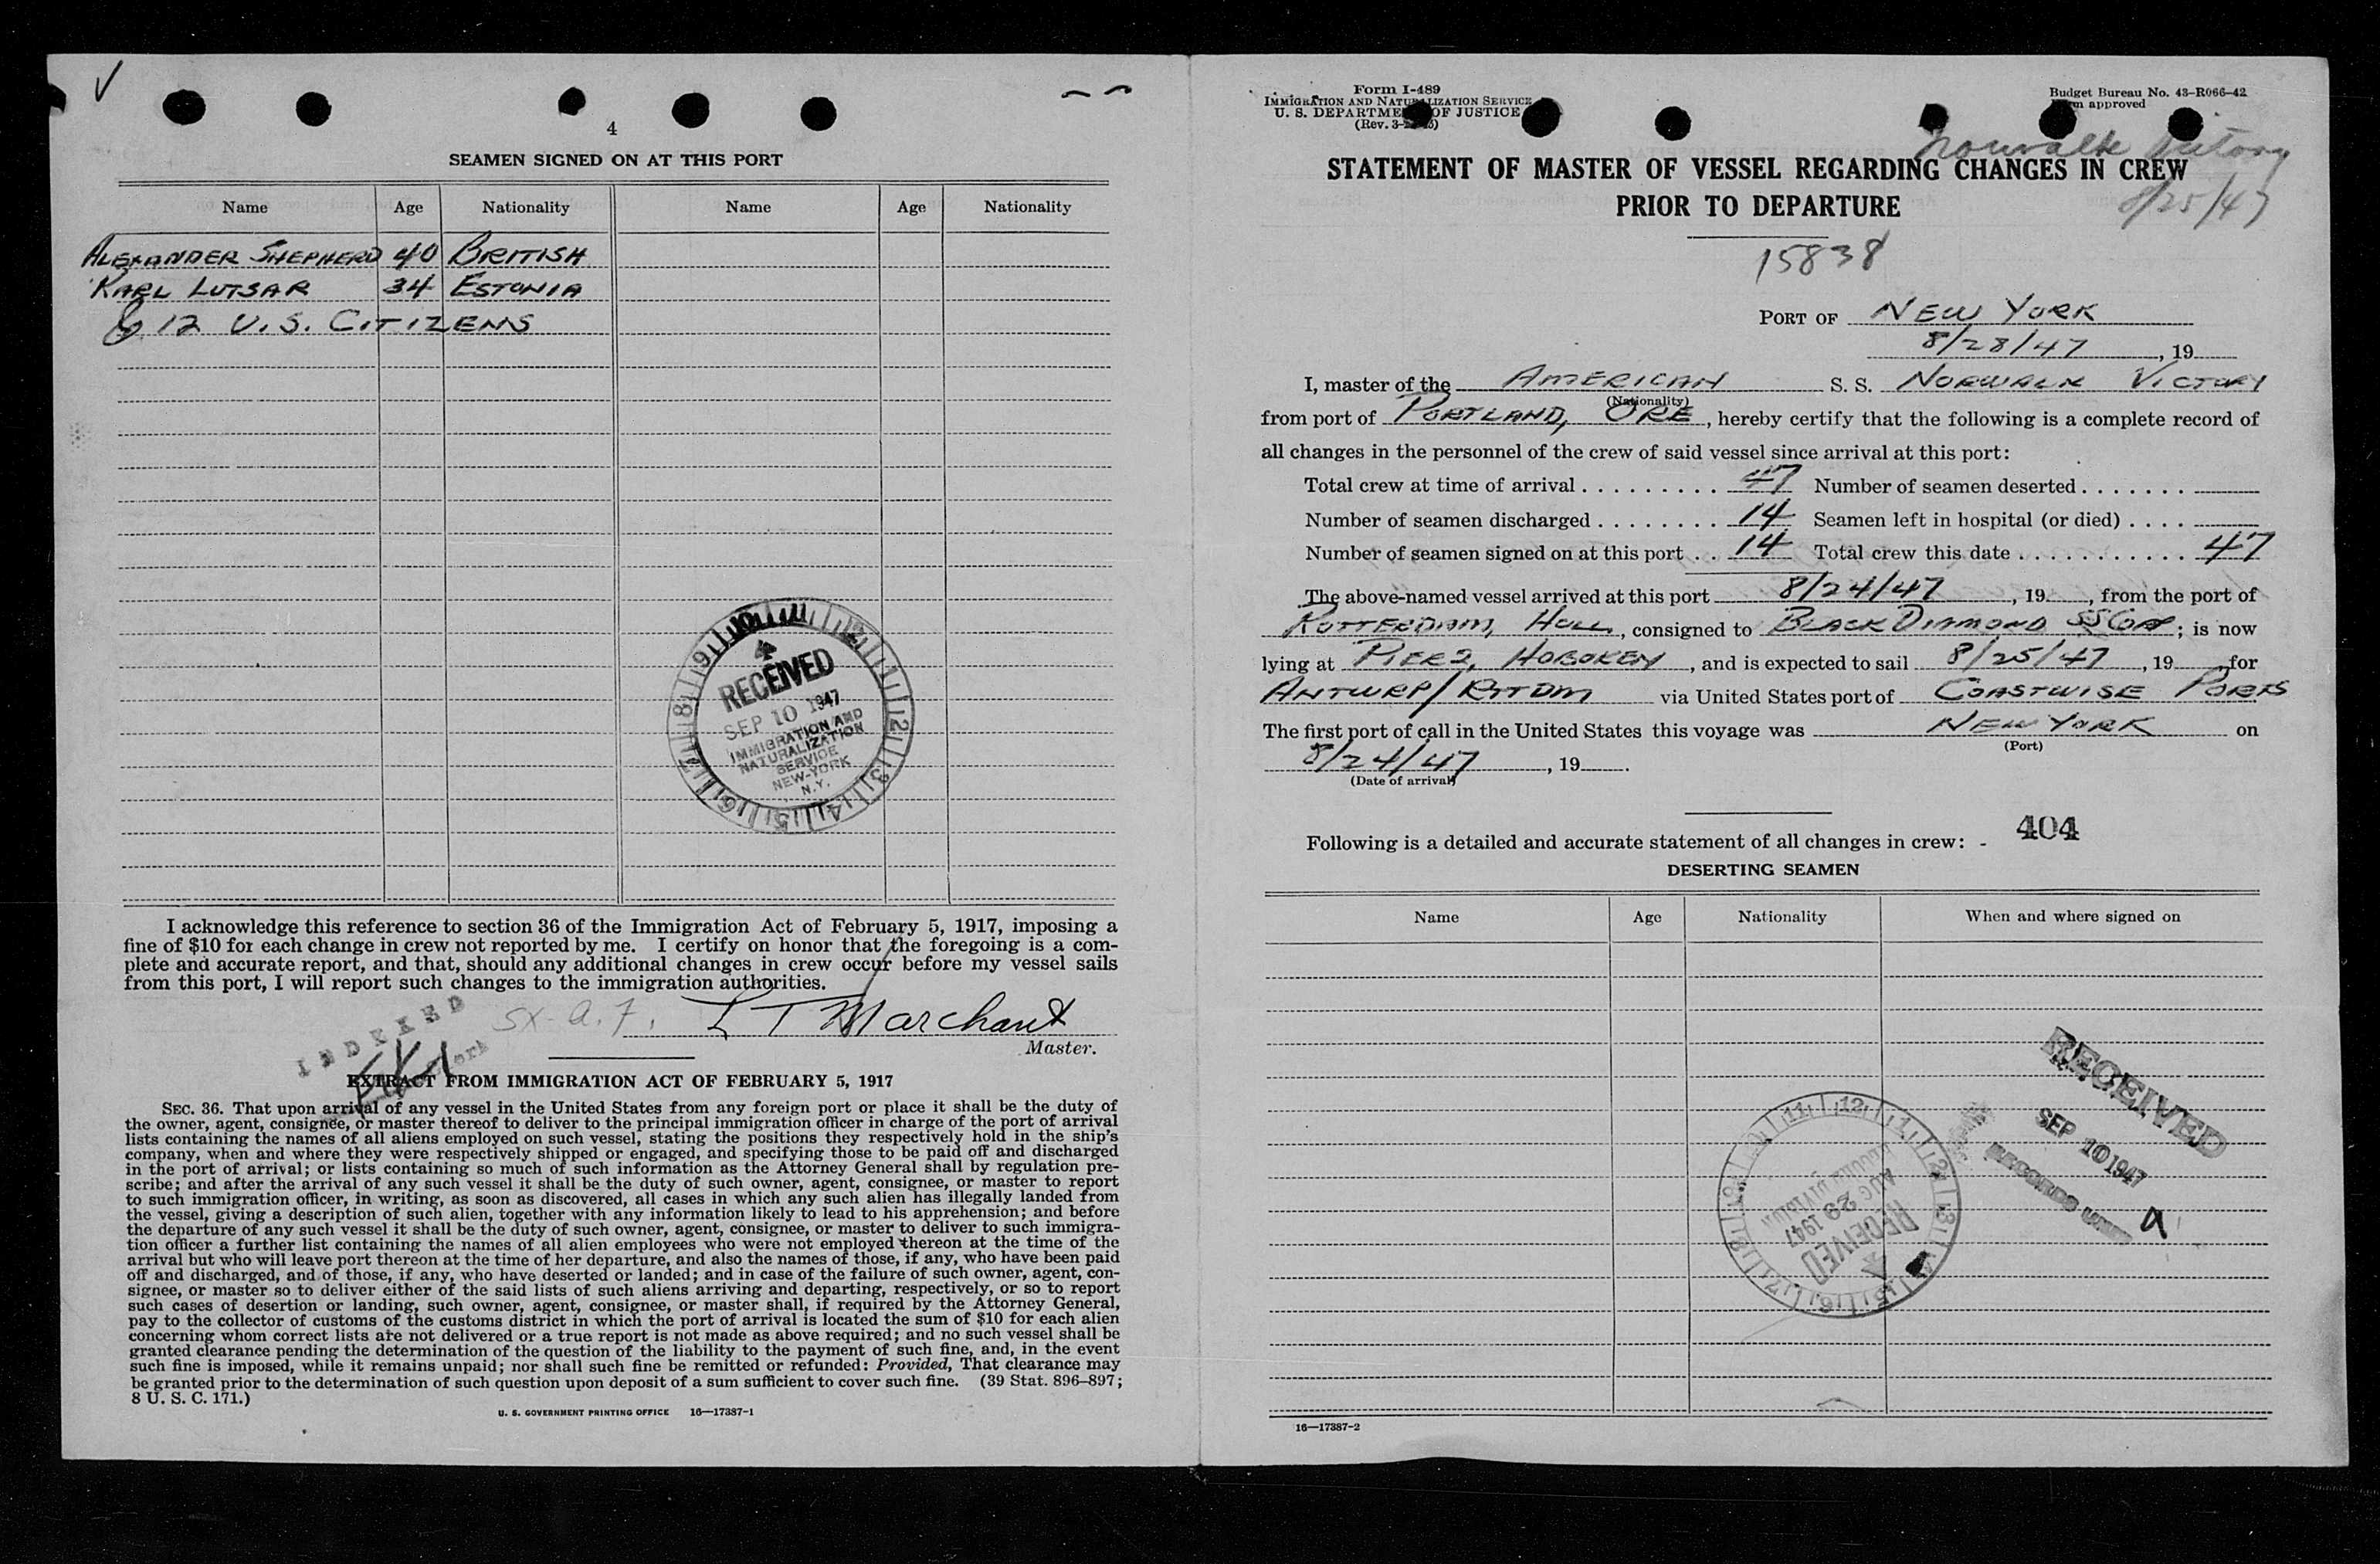 4
SEAMEN SIGNED ON AT THIS PORT
Name Age Nationality Name Age Nationality
ALEXANDER SHEPHERD 40 BRITISH
KARL LUTSAR 34 ESTONIA
12 U.S. CITIZENS
RECEIVED
SEP 10 1947
IMMIGRATION AND
NATURALIZATION
SERVICE
NEW-YORK
N.Y.
I acknowledge this reference to section 36 of the Immigration Act of February 5, 1917, imposing a
fine of $10 for each change in crew not reported by me. I certify on honor that the foregoing is a com-
plete and accurate report, and that, should any additional changes in crew occur before my vessel sails
from this port, I will report such changes to the immigration authorities.
INDEXED
L T Marchant
Master.
EXTRACT FROM IMMIGRATION ACT OF FEBRUARY 5, 1917
SEC. 36. That upon arrival of any vessel in the United States from any foreign port or place it shall be the duty of
the owner, agent, consignee, or master thereof to deliver to the principal immigration officer in charge of the port of arrival
lists containing the names of all aliens employed on such vessel, stating the positions they respectively hold in the ship's
company, when and where they were respectively shipped or engaged, and specifying those to be paid off and discharged
in the port of arrival; or lists containing so much of such information as the Attorney General shall by regulation pre-
scribe; and after the arrival of any such vessel it shall be the duty of such owner, agent, consignee, or master to report
to such immigration officer, in writing, as soon as discovered, all cases in which any such alien has illegally landed from
the vessel, giving a description of such alien, together with any information likely to lead to his apprehension; and before
the departure of any such vessel it shall be the duty of such owner, agent, consignee, or master to deliver to such immigra-
tion officer a further list containing the names of all alien employees who were not employed thereon at the time of the
arrival but who will leave port thereon at the time of her departure, and also the names of those, if any, who have been paid
off and discharged, and of those, if any, who have deserted or landed; and in case of the failure of such owner, agent, con-
signee, or master so to deliver either of the said lists of such aliens arriving and departing, respectively, or so to report
such cases of desertion or landing, such owner, agent, consignee, or master shall, if required by the Attorney General,
pay to the collector of customs of the customs district in which the port of arrival is located the sum of $10 for each alien
concerning whom correct lists are not delivered or a true report is not made as above required; and no such vessel shall be
granted clearance pending the determination of the question of the liability to the payment of such fine, and, in the event
such fine is imposed, while it remains unpaid; nor shall such fine be remitted or refunded: Provided, That clearance may
be granted prior to the determination of such question upon deposit of a sum sufficient to cover such fine. (39 Stat. 896–897;
8 U. S. C. 171.)
U. S. GOVERNMENT PRINTING OFFICE 16—17387-1
Form I-489
IMMIGRATION AND NATURALIZATION SERVICE
U. S. DEPARTMENT OF JUSTICE
Budget Bureau No. 43-R066-42
approved
Victory
8/25/47
STATEMENT OF MASTER OF VESSEL REGARDING CHANGES IN CREW
PRIOR TO DEPARTURE
15838
PORT OF NEW YORK
8/28/47, 19
I, master of the AMERICAN S. S. NORWALK VICTORY
(Nationality)
from port of PORTLAND, ORE, hereby certify that the following is a complete record of
all changes in the personnel of the crew of said vessel since arrival at this port:
Total crew at time of arrival 47 Number of seamen deserted
Number of seamen discharged 14 Seamen left in hospital (or died)
Number of seamen signed on at this port 14 Total crew this date 47
The above-named vessel arrived at this port 8/24/47, 19, from the port of
ROTTERDAM, HOLL, consigned to BLACK DIAMOND SS ; is now
lying at PIER 2, HOBOKEN, and is expected to sail 8/25/47, 19 for
ANTWERP/RTTDM via United States port of COASTWISE PORTS
The first port of call in the United States this voyage was NEW YORK on
(Port)
8/24/47, 19.
(Date of arrival)
Following is a detailed and accurate statement of all changes in crew: -
404
DESERTING SEAMEN
Name Age Nationality When and where signed on
RECEIVED
SEP 10 1947
RECORDS UNIT
RECEIVED
AUG 29 1947
16—17387-2